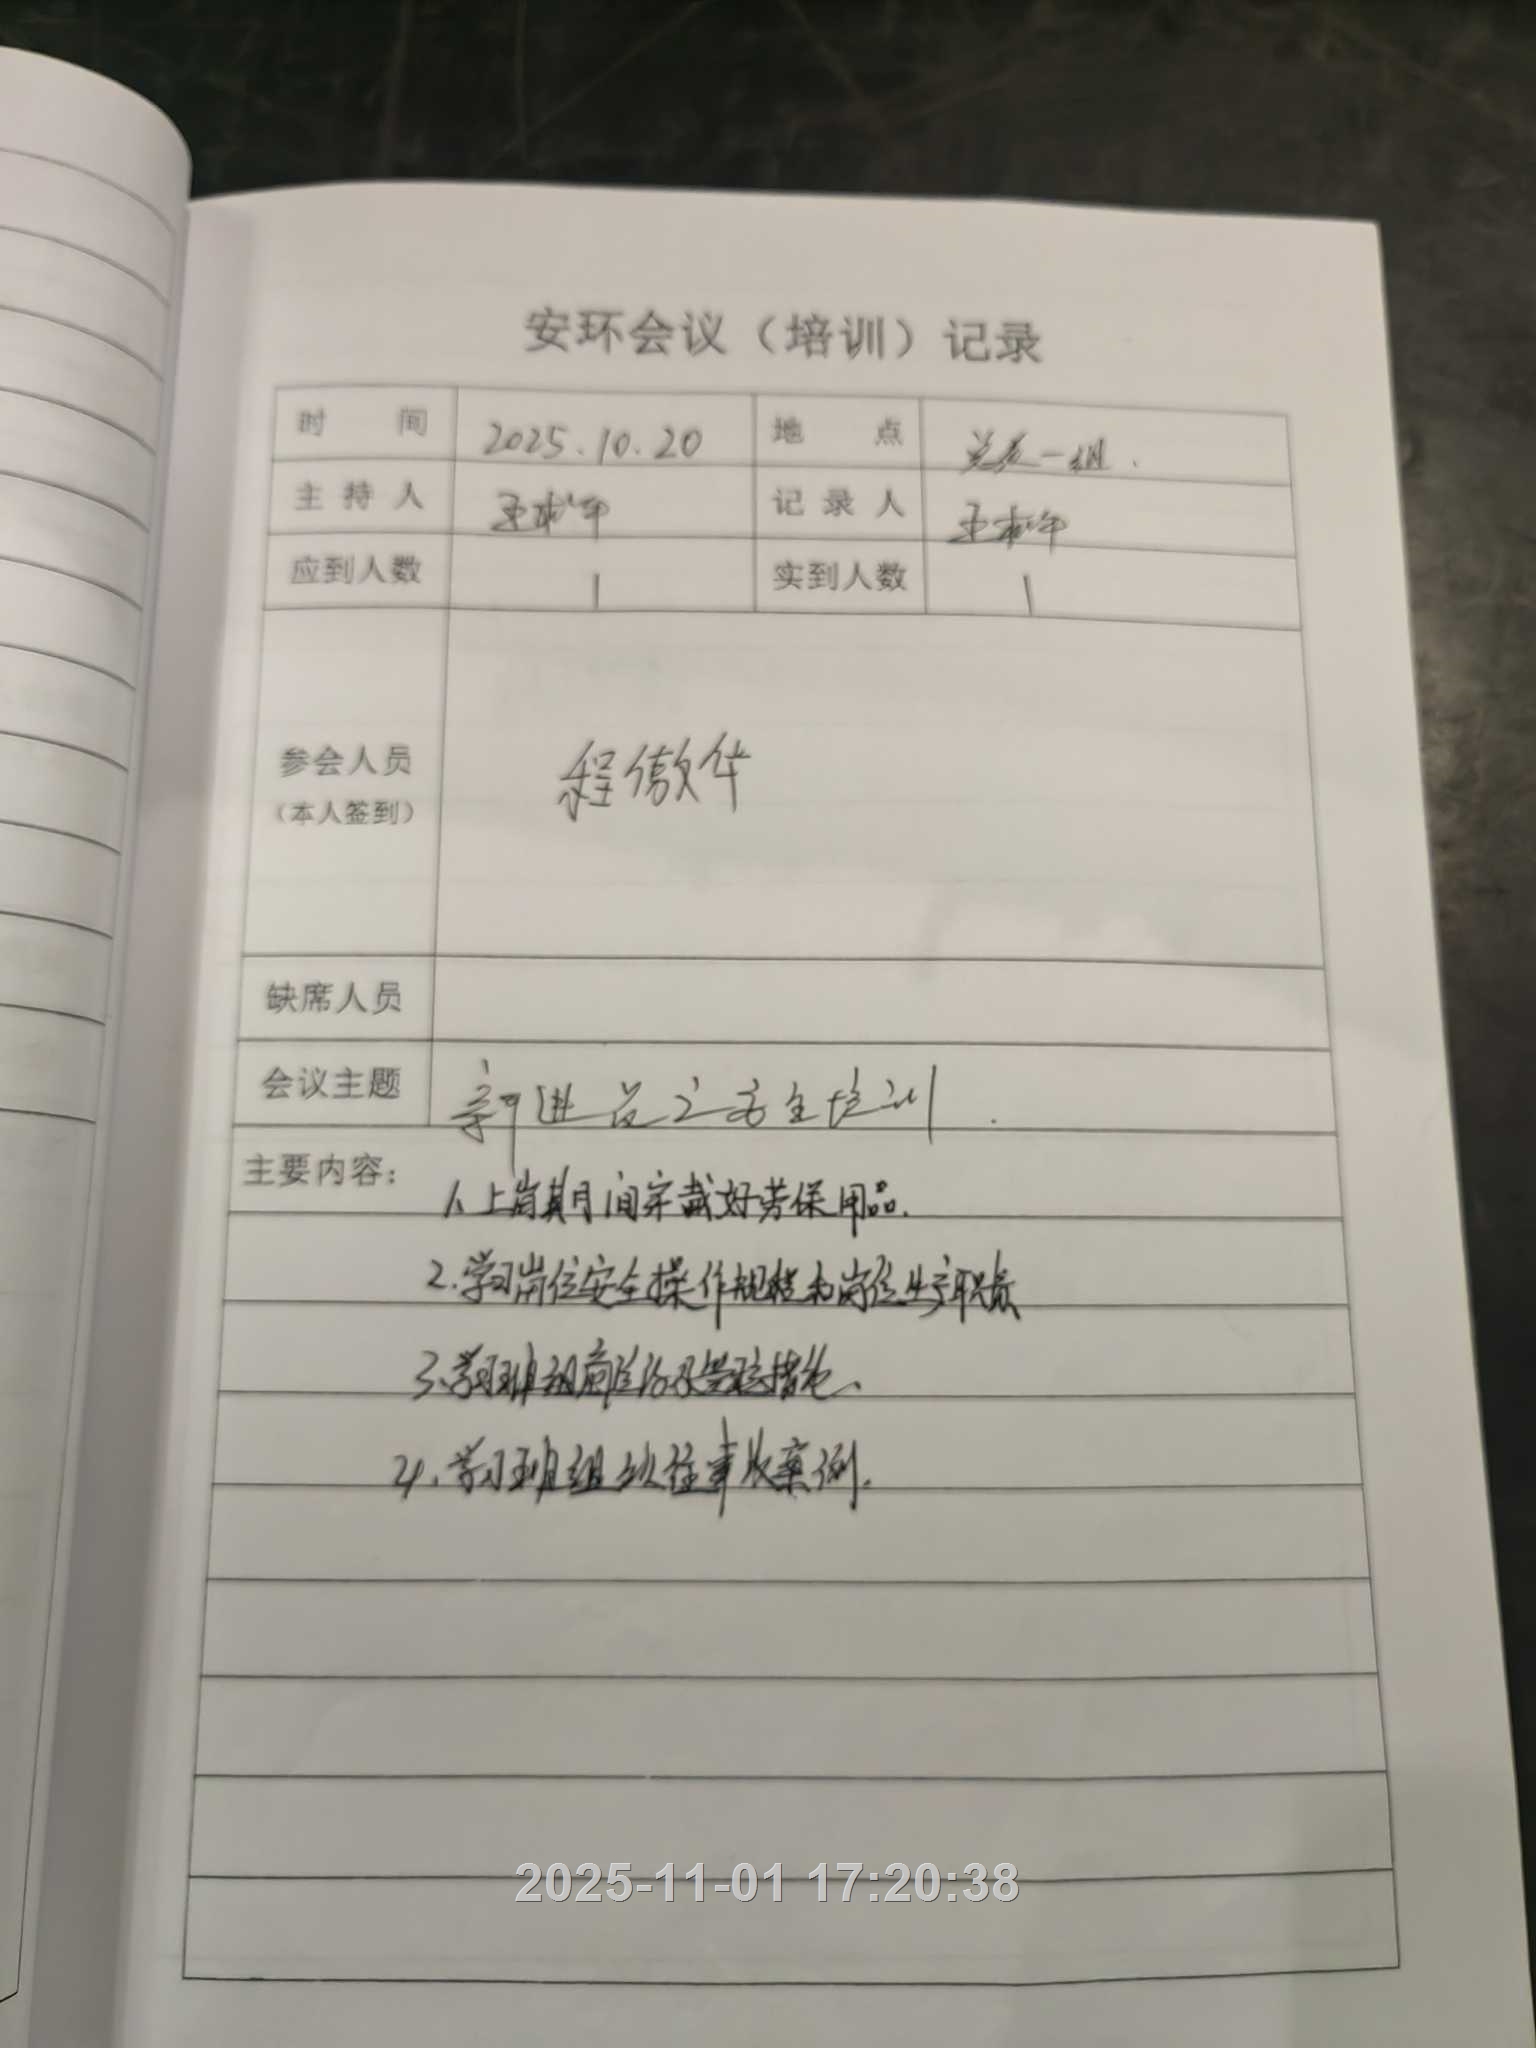 安环会议（培训）记录
时 间 2025.10.20 地 点 一组.
主持人 王 记录人 王
应到人数 1 实到人数 1
参会人员 程傲华
（本人签到）
缺席人员
会议主题 新进员工安全培训.
主要内容：
1、上岗期间穿戴好劳保用品.
2.学习岗位安全操作规程和岗位生产职责
3、学习班组 及 措施.
4、学习班组以往事故案例.
2025-11-01 17:20:38